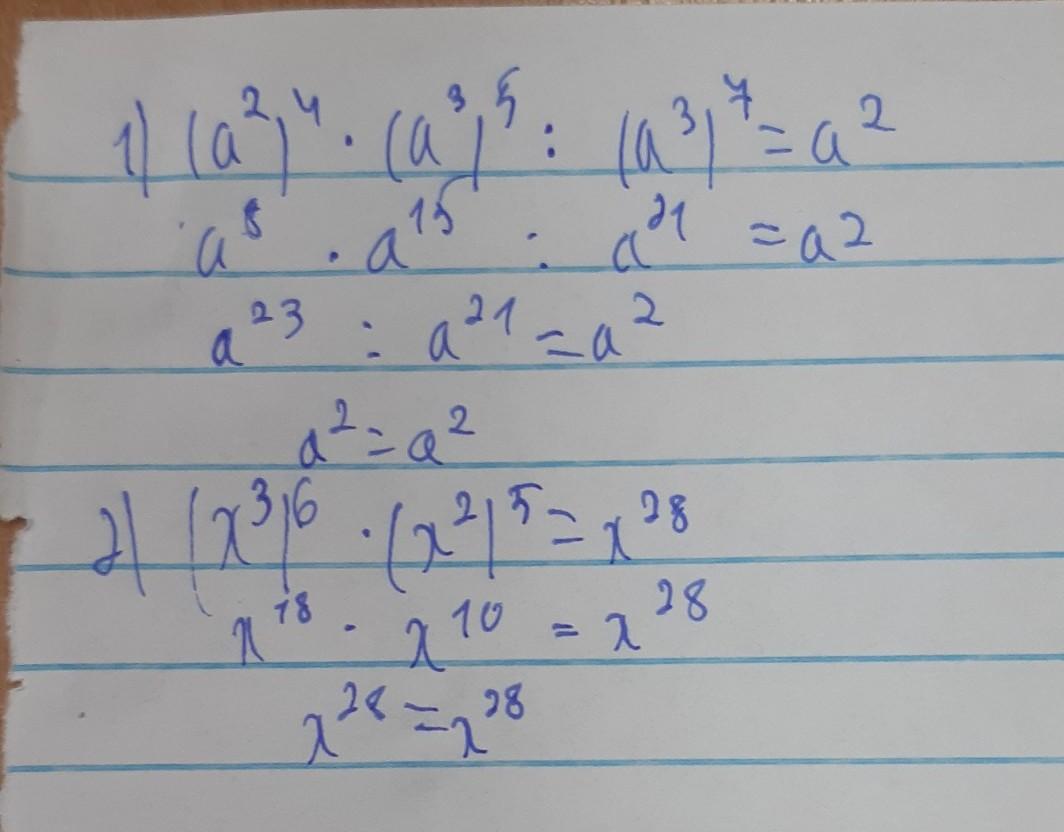 1) (a²)⁴ · (a³)⁵ : (a³)⁷ = a²
a⁸ · a¹⁵ : a²¹ = a²
a²³ : a²¹ = a²
a² = a²
2) (x³)⁶ · (x²)⁵ = x²⁸
x¹⁸ · x¹⁰ = x²⁸
x²⁸ = x²⁸